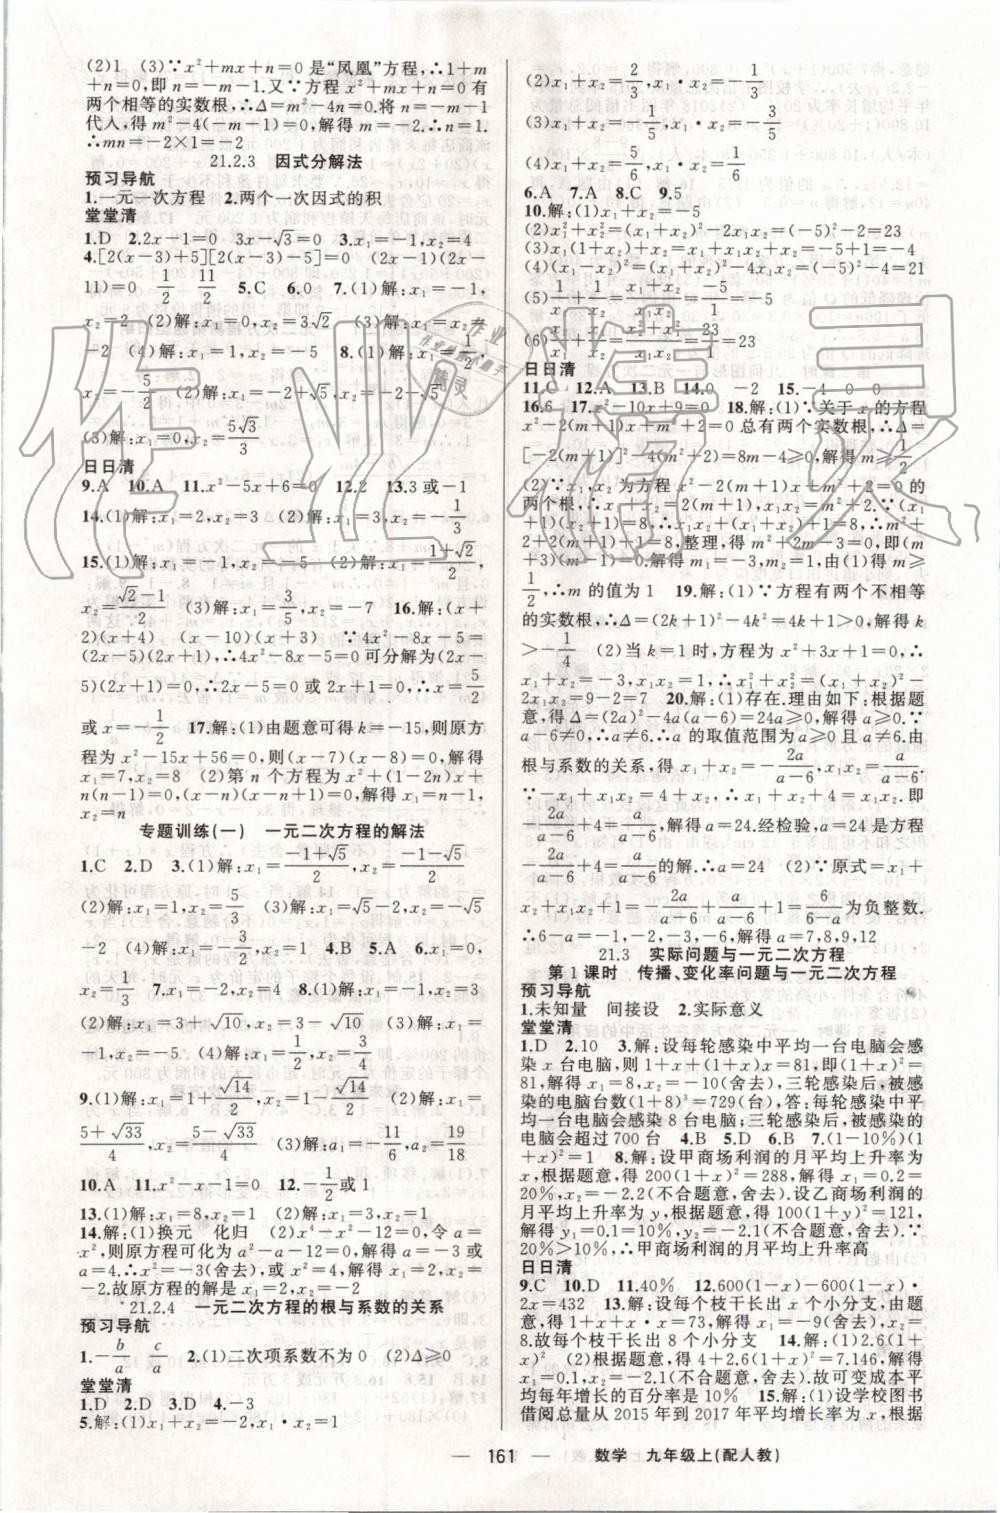 (2)1 (3)∵x²+mx+n=0是“凤凰”方程,∴1+m
+n=0,即n=-m-1.又∵方程x²+mx+n=0有
两个相等的实数根,∴Δ=m²-4n=0.将n=-m-1
代入,得m²-4(-m-1)=0,解得m=-2.∴n=1.
∴mn=-2×1=-2
21.2.3 因式分解法
预习导航
1.一元一次方程 2.两个一次因式的积
堂堂清
1.D 2.2x-1=0 3x-√3=0 3.x₁=-1,x₂=4
4.[2(x-3)+5][2(x-3)-5]=0 (2x-1)(2x-
11)=0 1/2 11/2 5.C 6.0 7.(1)解:x₁=-1,
x₂=2 (2)解:x₁=0,x₂=3√2 (3)解:x₁=x₂=
-2 (4)解:x₁=1,x₂=-5 8.(1)解:x₁=-1/2,
x₂=-5/2 (2)解:x₁=2+√5,x₂=-2-√5
(3)解:x₁=0,x₂=5√3/3
日日清
9.A 10.A 11.x²-5x+6=0 12.2 13.3或-1
14.(1)解:x₁=2,x₂=3 (2)解:x₁=3,x₂=-1/3
15.(1)解:x₁=1,x₂=-5 (2)解:x₁=-(1+√2)/2,
x₂=(√2-1)/2 (3)解:x₁=5/2,x₂=-7 16.解:(x+
2)(x+4) (x-10)(x+3) ∵4x²-8x-5=
(2x-5)(2x+1),∴4x²-8x-5=0可分解为(2x-
5)(2x+1)=0,∴2x-5=0或2x+1=0,∴x=5/2
或x=-1/2 17.解:(1)由题意可得k=-15,则原方
程为x²-15x+56=0,则(x-7)(x-8)=0,解得
x₁=7,x₂=8 (2)第n个方程为x²+(1-2n)x+
n(n-1)=0,(x-n)(x-n+1)=0,解得x₁=n-1,
x₂=n
专题训练(一) 一元二次方程的解法
1.C 2.D 3.(1)解:x₁=(-1+√5)/2,x₂=(-1-√5)/2
(2)解:x₁=1,x₂=-2/3 (3)解:x₁=√5-2,x₂=-√5
-2 (4)解:x₁=0,x₂=-1 4.B 5.A 6.x₁=0,
x₂=1/3 7.x₁=-2,x₂=4 8.(1)解:x₁=-1,x₂=3
(2)解:x₁=3+√10,x₂=3-√10 (3)解:x₁=
-1,x₂=-5 (4)解:x₁=1/2,x₂=3/4
9.(1)解:x₁=1+√14/2,x₂=1-√14/2 (2)解:x₁=
(5+√33)/4,x₂=(5-√33)/4 (3)解:a₁=11/6,a₂=19/18
10.A 11.x²-x-1=0 12.-1/2或1
13.(1)解:x₁=8,x₂=1 (2)解:x₁=0,x₂=1
14.解:(1)换元 化归 (2)x⁴-x²-12=0,令a=
x²,则原方程可化为a²-a-12=0,解得a₁=-3,a₂
=4.当a=-3时,x²=-3(舍去),或x²=4,解得x₁=2,x₂=
-2.故原方程的解为x₁=2,x₂=-2
21.2.4 一元二次方程的根与系数的关系
预习导航
1.-b/a c/a 2.(1)二次项系数不为0 (2)Δ≥0
堂堂清
1.D 2.D 3.D 4.-3
5.解:(1)x₁+x₂=-2,x₁·x₂=1
(2)x₁+x₂=2/3,x₁·x₂=-1/3
(3)x₁+x₂=-1/5,x₁·x₂=-3/5
(4)x₁+x₂=4,x₁·x₂=1
6.A 7.A 8.C 9.5
10.解:(1)x₁+x₂=-5
(2)x₁²+x₂²=(x₁+x₂)²-2x₁x₂=(-5)²-2=23
(3)x₁(1+x₂)+x₂=x₁+x₁x₂+x₂=-5+1=-4
(4)(x₁-x₂)²=(x₁+x₂)²-4x₁x₂=(-5)²-4=21
日日清
11.C 12.A 13.B 14.0 -2 15.-4 0 0
16.6 17.x²-10x+9=0 18.解:(1)∵关于x的方程
x²-2(m+1)x+m²+2=0总有两个实数根,∴Δ=
[-2(m+1)]²-4(m²+2)=8m-4≥0,解得m≥1/2
(2)∵x₁,x₂为方程x²-2(m+1)x+m²+2=0的
两个根,∴x₁+x₂=2(m+1),x₁x₂=m²+2.∵(x₁
+1)(x₂+1)=8,∴x₁x₂+(x₁+x₂)+1=8,∴m²+
2+2(m+1)+1=8,整理,得m²+2m-3=0,即(m+
3)(m-1)=0.解得m₁=-3,m₂=1,由(1)得m≥
1/2,∴m的值为1 19.解:(1)∵方程有两个不相等
的实数根,∴Δ=(2k+1)²-4k²=4k+1>0,解得k
>-1/4 (2)当k=1时,方程为x²+3x+1=0,
∴x₁+x₂=-3,x₁x₂=1,∴x₁²+x₂²=(x₁+x₂)²-
2x₁x₂=9-2=7 20.解:(1)存在.理由如下:根据题
意,得Δ=(2a)²-4a(a-6)=24a≥0,解得a≥0.∵
a-6≠0,∴a≠6.∴a的取值范围为a≥0且a≠6.由
根与系数的关系,得x₁+x₂=-2a/(a-6),x₁x₂=a/(a-6).
∵-x₁+x₁x₂=4+x₂,∴x₁+x₂+4=x₁x₂.即
-2a/(a-6)+4=a/(a-6),解得a=24.经检验,a=24是方程
-2a/(a-6)+4=a/(a-6)的解.∴a=24 (2)∵原式=x₁+
x₂+x₁x₂+1=-2a/(a-6)+a/(a-6)+1=6/(6-a)为负整数.
∴6-a=-1,-2,-3,-6.∴a=7,8,9,12
21.3 实际问题与一元二次方程
第1课时 传播、变化率问题与一元二次方程
预习导航
1.未知量 间接设 2.实际意义
堂堂清
1.D 2.10 3.解:设每轮感染中平均一台电脑会感
染x台电脑,则1+x+(1+x)x=81,即(1+x)²=
81,解得x₁=8,x₂=-10(舍去),三轮感染后,被感
染的电脑台数(1+8)³=729(台),答:每轮感染中平
均一台电脑会感染8台电脑;三轮感染后,被感染的
电脑会超过700台 4.B 5.D 6.B 7.(1-10%)(1
+x)²=1 8.解:设甲商场利润的月平均上升率为
x,根据题意,得200(1+x)²=288,解得x₁=0.2=
20%,x₂=-2.2(不合题意,舍去).设乙商场利润的
月平均上升率为y,根据题意,得100(1+y)²=121,
解得y₁=0.1=10%,y₂=-2.1(不合题意,舍去).∵
20%>10%,∴甲商场利润的月平均上升率高
日日清
9.C 10.D 11.40% 12.600(1-x)-600(1-x)·
2x=432 13.解:设每个枝干长出x个小分支,由题
意,得1+x+x·x=73,解得x₁=-9(舍去),x₂=
8.故每个枝干长出8个小分支 14.解:(1)2.6(1+
x)² (2)根据题意,得4+2.6(1+x)²=7.146,解得
x₁=0.1,x₂=-2.1(不合题意,舍去).故可变成本平
均每年增长的百分率是10% 15.解:(1)设学校图书
借阅总量从2015年到2017年平均增长率为x,根据
— 161 — 数学 九年级上(配人教)